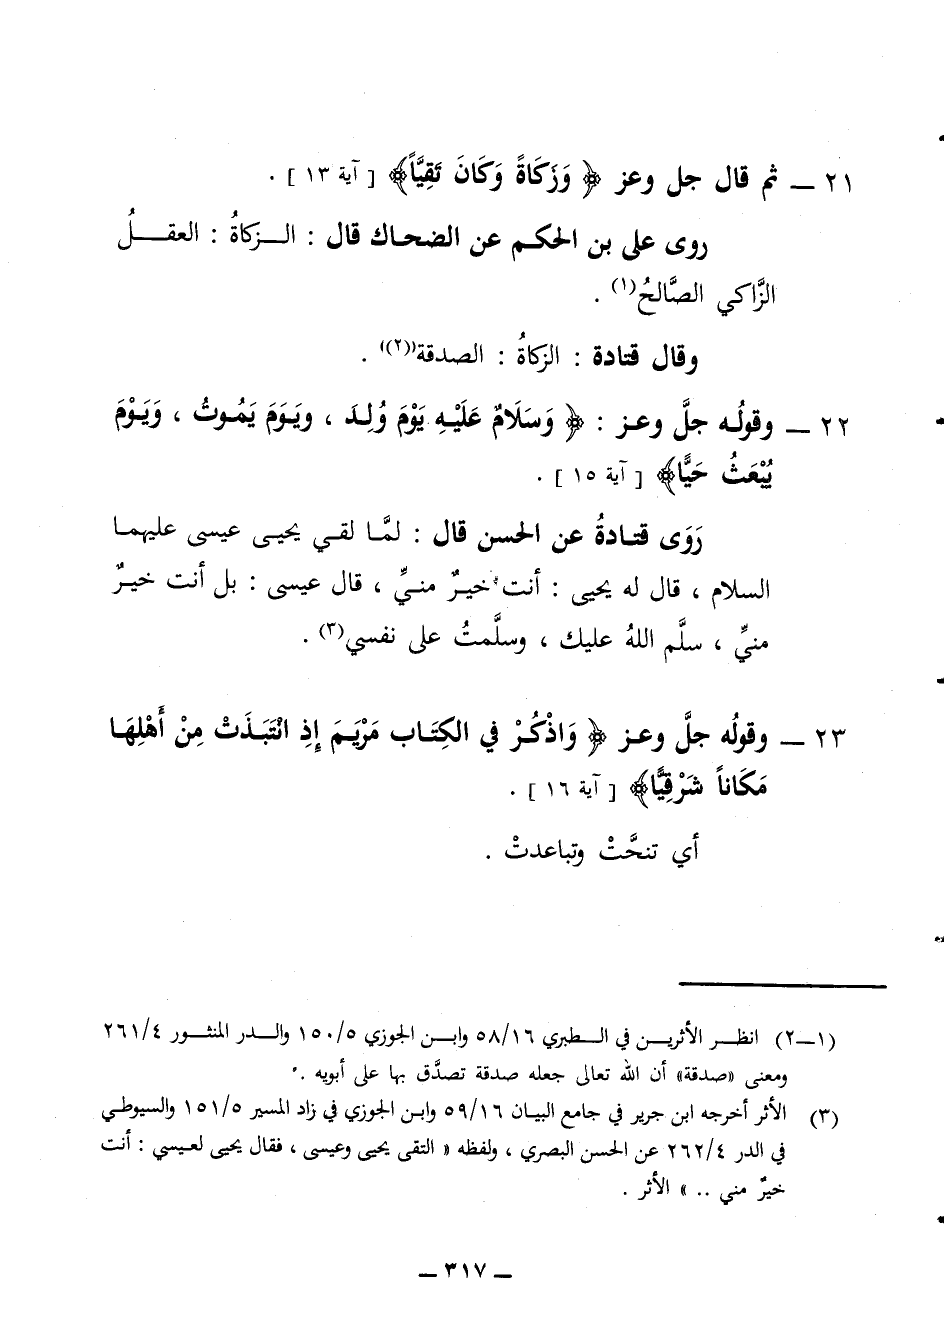 ٢١ ــ ثم قال جل وعز ﴿ وَزَكَاةً وَكَانَ تَقِيَّاً﴾ [ آية ١٣ ] .
روى على بن الحكم عن الضحاك قال : الـزكاةُ : العقـلُ
الزَّاكي الصَّالحُ(١) .
وقال قتادة : الزكاةُ : الصدقة(٢) .
٢٢ ــ وقولُه جلَّ وعـز : ﴿ وَسَلَامٌ عَلَيْهِ يَوْمَ وُلِدَ ، ويَوَمَ يَمُوتُ ، وَيَوْمَ
يُبْعَثُ حَيًّا﴾ [ آية ١٥ ] .
رَوَى قتادةُ عن الحسن قال : لمَّا لقي يحيى عيسى عليهما
السلام ، قال له يحيى : أنت خيرٌ منيِّ ، قال عيسى : بل أنت خيرٌ
منيِّ ، سلَّم اللهُ عليك ، وسلَّمتُ على نفسي(٣) .
٢٣ ــ وقولُه جلَّ وعـز ﴿ وَاذْكُرْ في الكِتَاب مَرْيَمَ إِذِ انْتَبَذَتْ مِنْ أَهْلِهَا
مَكَاناً شَرْقِيًّا﴾ [ آية ١٦ ] .
أي تنحَّتْ وتباعدتْ .
(١ــ٢) انظـر الأثريـن في الـطبري ٥٨/١٦ وابـن الجوزي ١٥٠/٥ والـدر المنثـور ٢٦١/٤
ومعنى «صدقة» أن الله تعالى جعله صدقة تصدَّق بها على أبويه .
(٣) الأثر أخرجه ابن جرير في جامع البيان ٥٩/١٦ وابن الجوزي في زاد المسير ١٥١/٥ والسيوطي
في الدر ٢٦٢/٤ عن الحسن البصري ، ولفظه « التقى يحيى وعيسى ، فقال يحيى لعيسي : أنت
خيرٌ مني .. » الأثر .
ــ ٣١٧ ــ